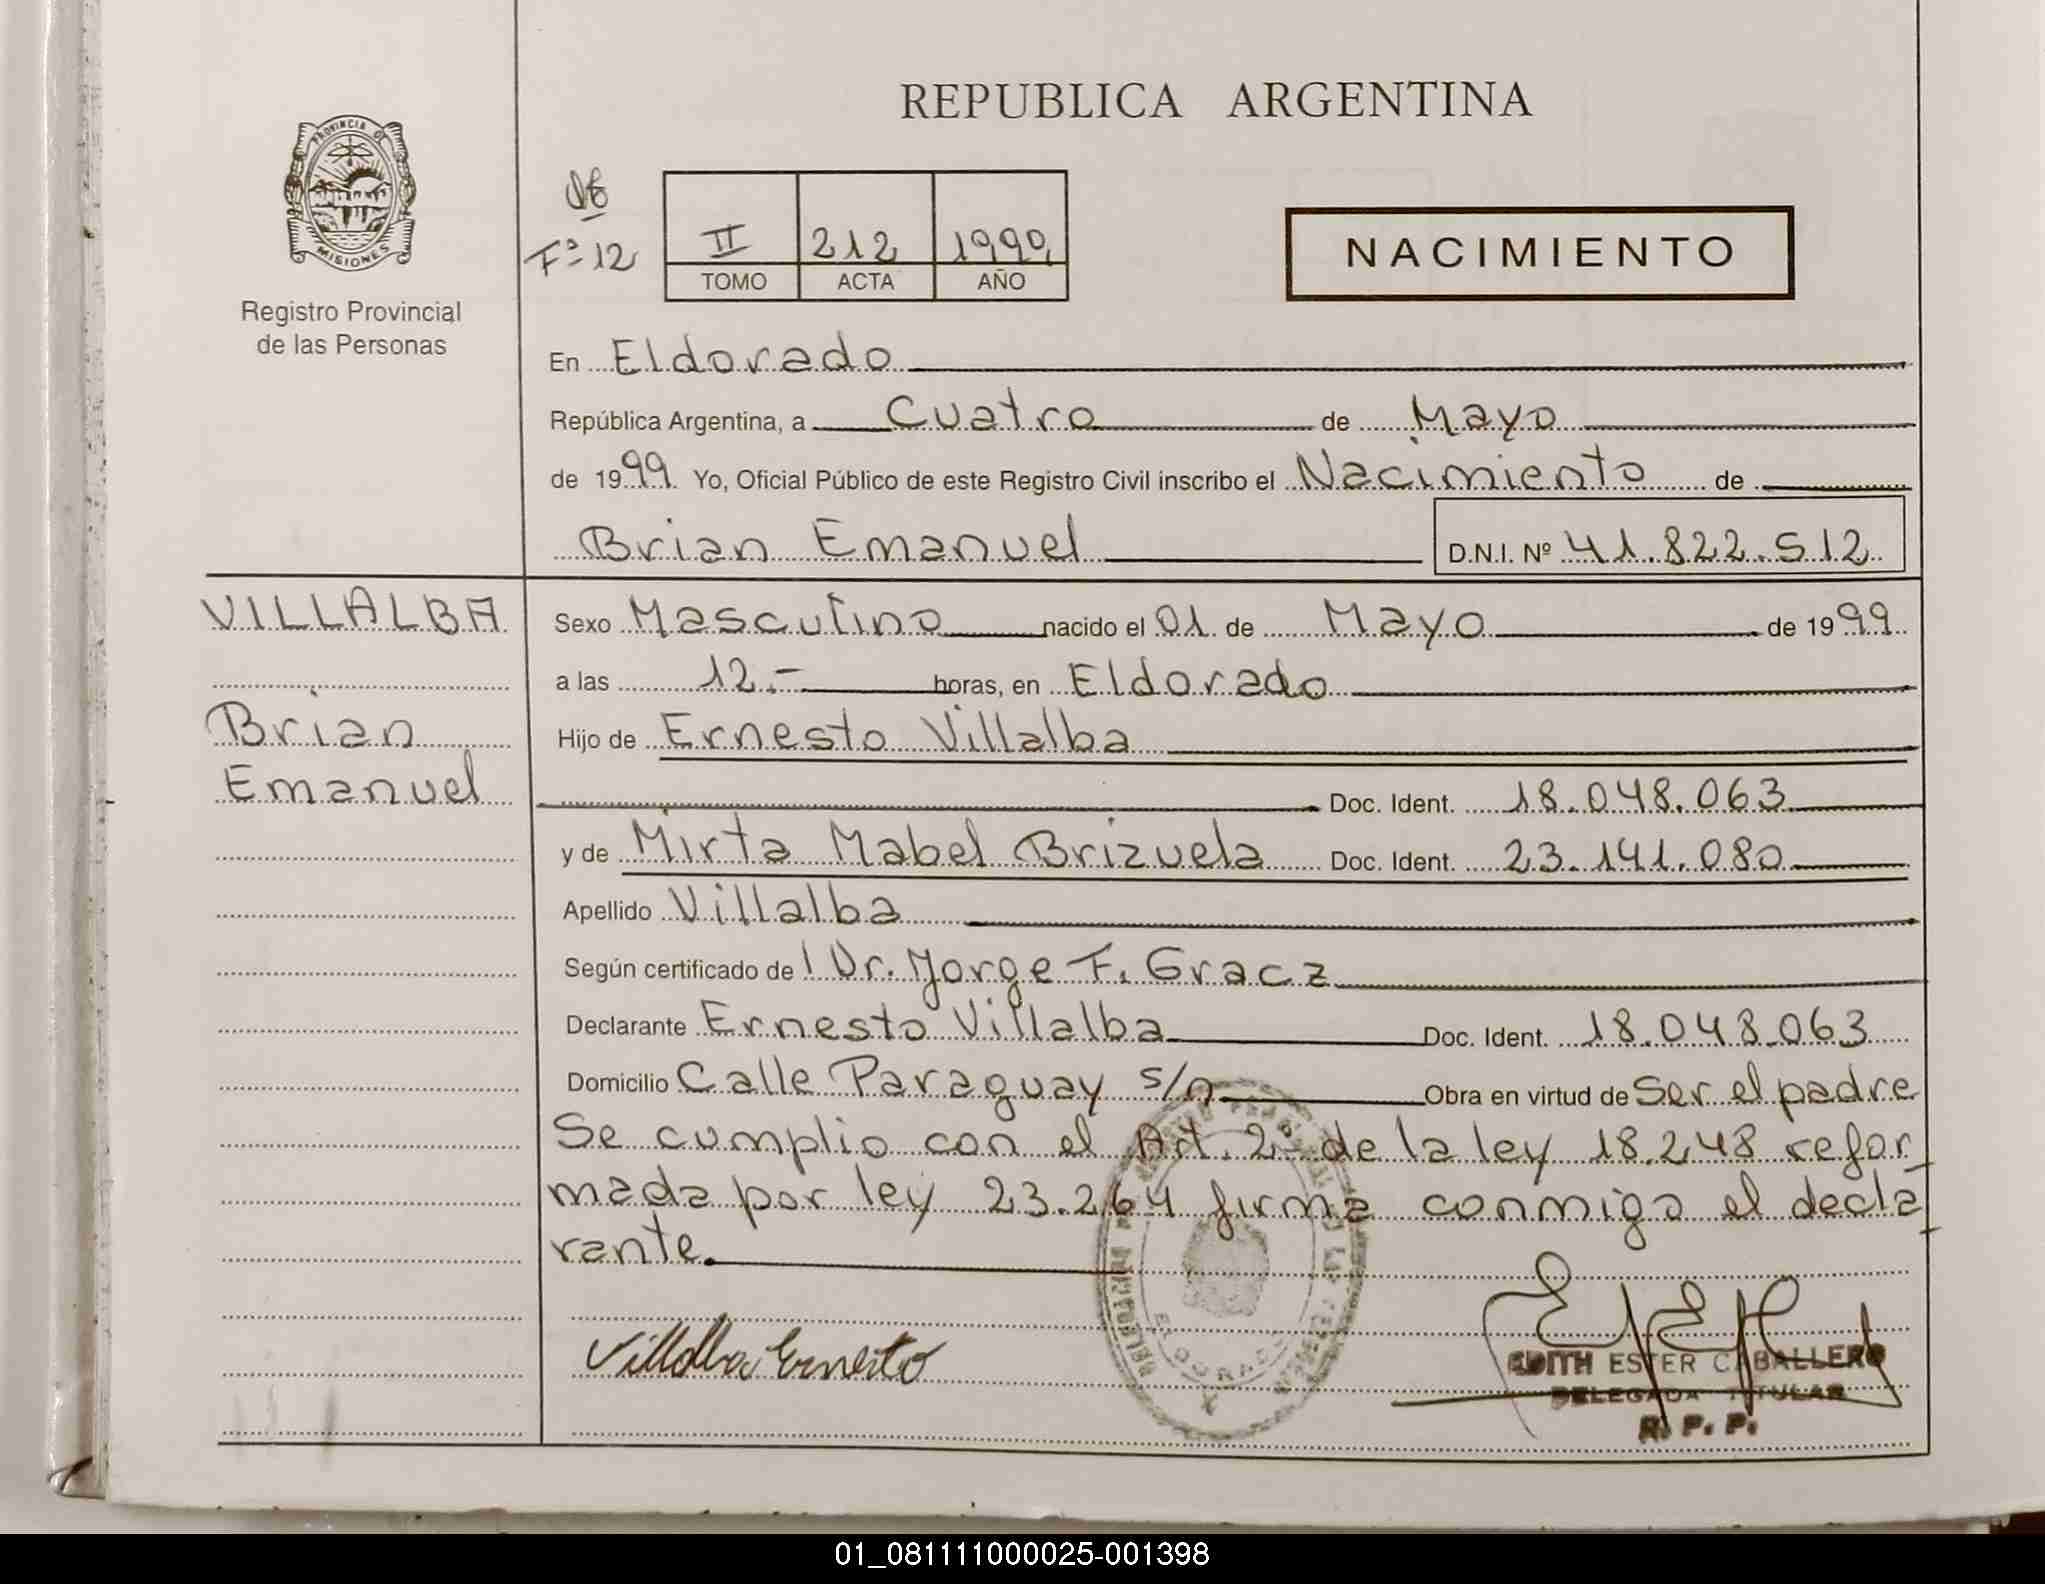 REPUBLICA ARGENTINA
PROVINCIA DE
MISIONES
Registro Provincial
de las Personas
Fº 12
II 212 1999
TOMO ACTA AÑO
NACIMIENTO
En Eldorado
República Argentina, a Cuatro de Mayo
de 1999 Yo, Oficial Público de este Registro Civil inscribo el Nacimiento de
Brian Emanuel D.N.I. Nº 41.822.512
VILLALBA
Brian
Emanuel
Sexo Masculino nacido el 01 de Mayo de 1999
a las 12.- horas, en Eldorado
Hijo de Ernesto Villalba
Doc. Ident. 18.048.063
y de Mirta Mabel Brizuela Doc. Ident. 23.141.080
Apellido Villalba
Según certificado de l Dr. Jorge F. Gracz
Declarante Ernesto Villalba Doc. Ident. 18.048.063
Domicilio Calle Paraguay s/n Obra en virtud de Ser el padre
Se cumplio con el Art. 2º de la ley 18.248 refor
mada por ley 23.264 firma conmigo el decla
rante.
Villalba Ernesto
ELDORADO
EDITH ESTER CABALLERO
DELEGADA TITULAR
R. P. P.
01_081111000025-001398